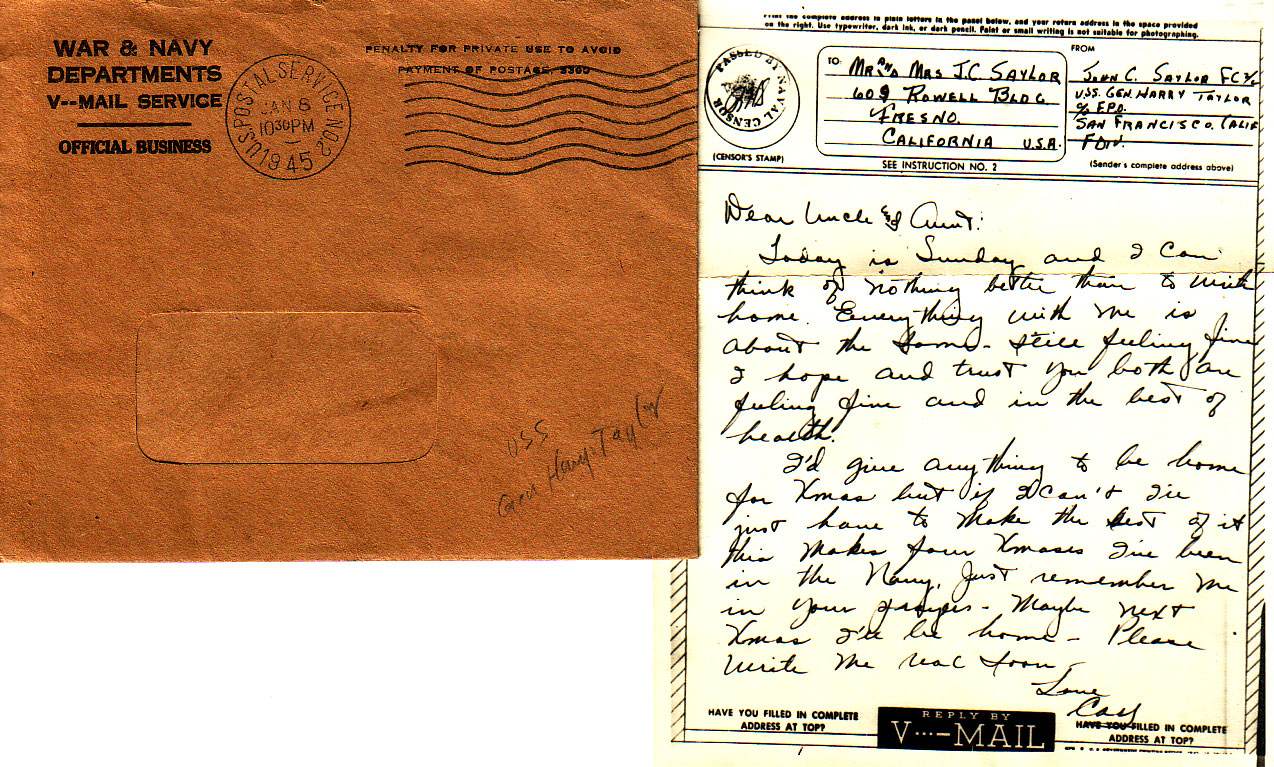 WAR & NAVY
DEPARTMENTS
V---MAIL SERVICE
OFFICIAL BUSINESS
U.S. POSTAL SERVICE No.
JAN 8
1030 PM
1945
PENALTY FOR PRIVATE USE TO AVOID
PAYMENT OF POSTAGE, $300
USS
Gen Harry Taylor
Print the complete address in plain letters in the panel below, and your return address in the space provided
on the right. Use typewriter, dark ink, or dark pencil. Faint or small writing is not suitable for photographing.
PASSED BY NAVAL CENSOR
(CENSOR'S STAMP)
TO:
MR AND MRS J.C. SAYLOR
609 ROWELL BLDG
FRESNO.
CALIFORNIA U.S.A.
SEE INSTRUCTION NO. 2
FROM
JOHN C. SAYLOR FC 3/c
USS. GEN. HARRY TAYLOR
% F.P.O.
SAN FRANCISCO. CALIF
FDIV.
(Sender's complete address above)
Dear Uncle & Aunt:
Today is Sunday and I Can
think of nothing better than to write
home. Everything with me is
about the same - still feeling fine
I hope and trust you both are
feeling fine and in the best of
health.
I'd give anything to be home
for Xmas but if I Can't I'll
just have to make the best of it
this makes four Xmases I've been
in the Navy. Just remember me
in your prayers - Maybe next
Xmas I'll be home - Please
write me real soon
Love
HAVE YOU FILLED IN COMPLETE
ADDRESS AT TOP?
REPLY BY
V---MAIL
HAVE YOU FILLED IN COMPLETE
ADDRESS AT TOP?